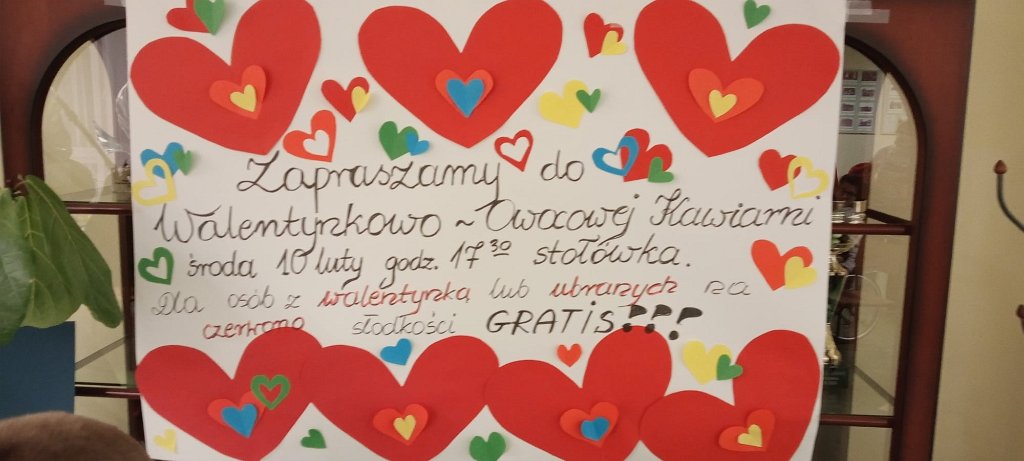 Zapraszamy do
Walentynkowo ~ Owocowej Kawiarni
środa 10 luty godz. 17³⁰ stołówka.
Dla osób z walentynką lub ubranych na
czerwono słodkości GRATIS???